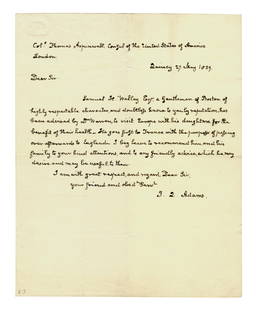 Col.º Thomas Aspinwall. Consul of the United States of America
London.
Quincy 27 May 1839.
Dear Sir
Samuel H. Walley Esqr. a Gentleman of Boston of
highly respectable character and doubtless known to you by reputation, has
been advised by Dr Warren, to visit Europe with his daughters for the
benefit of their health. He goes first to France with the purpose of passing
over afterwards to England. I beg leave to recommend him and his
family to your kind attentions, and to any friendly advice, which he may
desire and may be useful to them.
I am with great respect, and regard, Dear Sir,
your friend and obedt Servt
J. Q. Adams